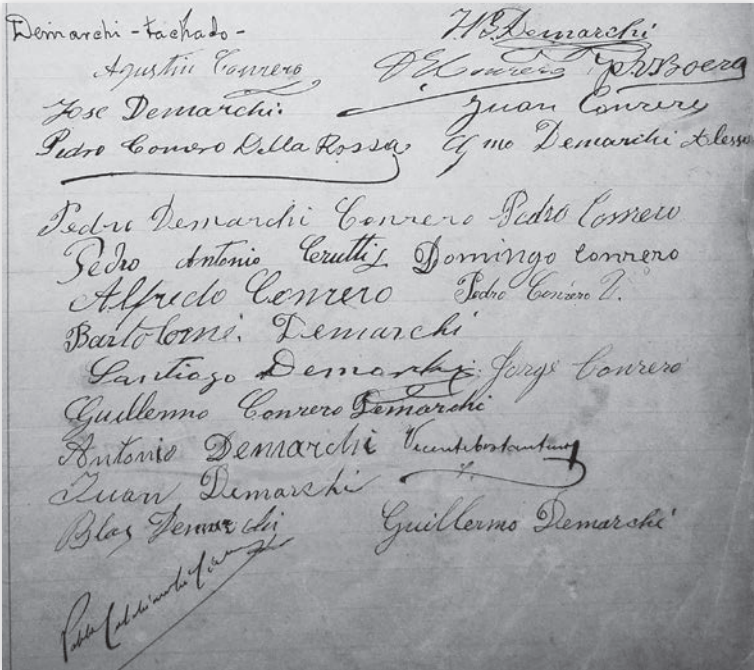 Demarchi - tachado - H B. Demarchi
Agustin Conrero D E Conrero JPVBoero
Jose Demarchi. Juan Conrero
Pedro Conrero Della Rossa Gmo Demarchi Alesso
Pedro Demarchi Conrero Pedro Conrero
Pedro Antonio Cerutti Domingo Conrero
Alfredo Conrero Pedro Conrero
Bartolomé. Demarchi
Santiago Demarchi Jorge Conrero
Guillermo Conrero Demarchi
Antonio Demarchi Vicente Costantino
Juan Demarchi
Blas Demarchi Guillermo Demarchi